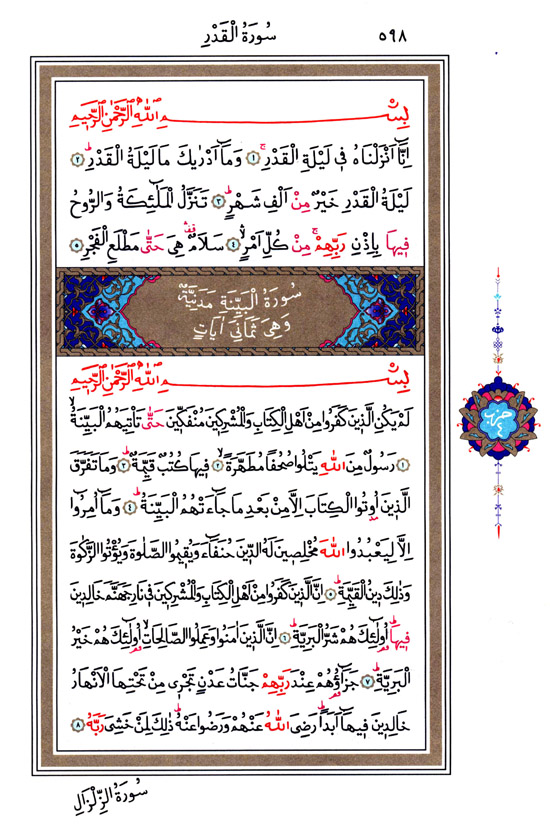 سُورَةُ الْقَدْرِ ٥٩٨
بِسْمِ اللّٰهِ الرَّحْمٰنِ الرَّحِيمِ
اِنَّٓا اَنْزَلْنَاهُ فٖى لَيْلَةِ الْقَدْرِۚ ﴿١﴾ وَمَٓا اَدْرٰيكَ مَا لَيْلَةُ الْقَدْرِؕ ﴿٢﴾
لَيْلَةُ الْقَدْرِ خَيْرٌ مِنْ اَلْفِ شَهْرٍؕ ﴿٣﴾ تَنَزَّلُ الْمَلٰٓئِكَةُ وَالرُّوحُ
فٖيهَا بِاِذْنِ رَبِّهِمْۚ مِنْ كُلِّ اَمْرٍۙ ﴿٤﴾ سَلَامٌ هِىَ حَتّٰى مَطْلَعِ الْفَجْرِ ﴿٥﴾
سُورَةُ الْبَيِّنَةِ مَدَنِيَّةٌ
وَهِىَ ثَمَانٖى اٰيَاتٍ
بِسْمِ اللّٰهِ الرَّحْمٰنِ الرَّحِيمِ
لَمْ يَكُنِ الَّذٖينَ كَفَرُوا مِنْ اَهْلِ الْكِتَابِ وَالْمُشْرِكٖينَ مُنْفَكّٖينَ حَتّٰى تَاْتِيَهُمُ الْبَيِّنَةُۙ
﴿١﴾ رَسُولٌ مِنَ اللّٰهِ يَتْلُوا صُحُفًا مُطَهَّرَةًۙ ﴿٢﴾ فٖيهَا كُتُبٌ قَيِّمَةٌؕ ﴿٣﴾ وَمَا تَفَرَّقَ
الَّذٖينَ اُو۫تُوا الْكِتَابَ اِلَّا مِنْ بَعْدِ مَا جَٓاءَتْهُمُ الْبَيِّنَةُؕ ﴿٤﴾ وَمَٓا اُمِرُٓوا
اِلَّا لِيَعْبُدُوا اللّٰهَ مُخْلِصٖينَ لَهُ الدّٖينَ حُنَفَٓاءَ وَيُقٖيمُوا الصَّلٰوةَ وَيُؤْتُوا الزَّكٰوةَ
وَذٰلِكَ دٖينُ الْقَيِّمَةِؕ ﴿٥﴾ اِنَّ الَّذٖينَ كَفَرُوا مِنْ اَهْلِ الْكِتَابِ وَالْمُشْرِكٖينَ فٖى نَارِ جَهَنَّمَ خَالِدٖينَ
فٖيهَاؕ اُو۬لٰٓئِكَ هُمْ شَرُّ الْبَرِيَّةِؕ ﴿٦﴾ اِنَّ الَّذٖينَ اٰمَنُوا وَعَمِلُوا الصَّالِحَاتِۙ اُو۬لٰٓئِكَ هُمْ خَيْرُ
الْبَرِيَّةِؕ ﴿٧﴾ جَزَٓاؤُ۬هُمْ عِنْدَ رَبِّهِمْ جَنَّاتُ عَدْنٍ تَجْرٖى مِنْ تَحْتِهَا الْاَنْهَارُ
خَالِدٖينَ فٖيهَٓا اَبَدًاؕ رَضِىَ اللّٰهُ عَنْهُمْ وَرَضُوا عَنْهُؕ ذٰلِكَ لِمَنْ خَشِىَ رَبَّهُ ﴿٨﴾
حزب
٤
سُورَةُ الزِّلْزَالِ